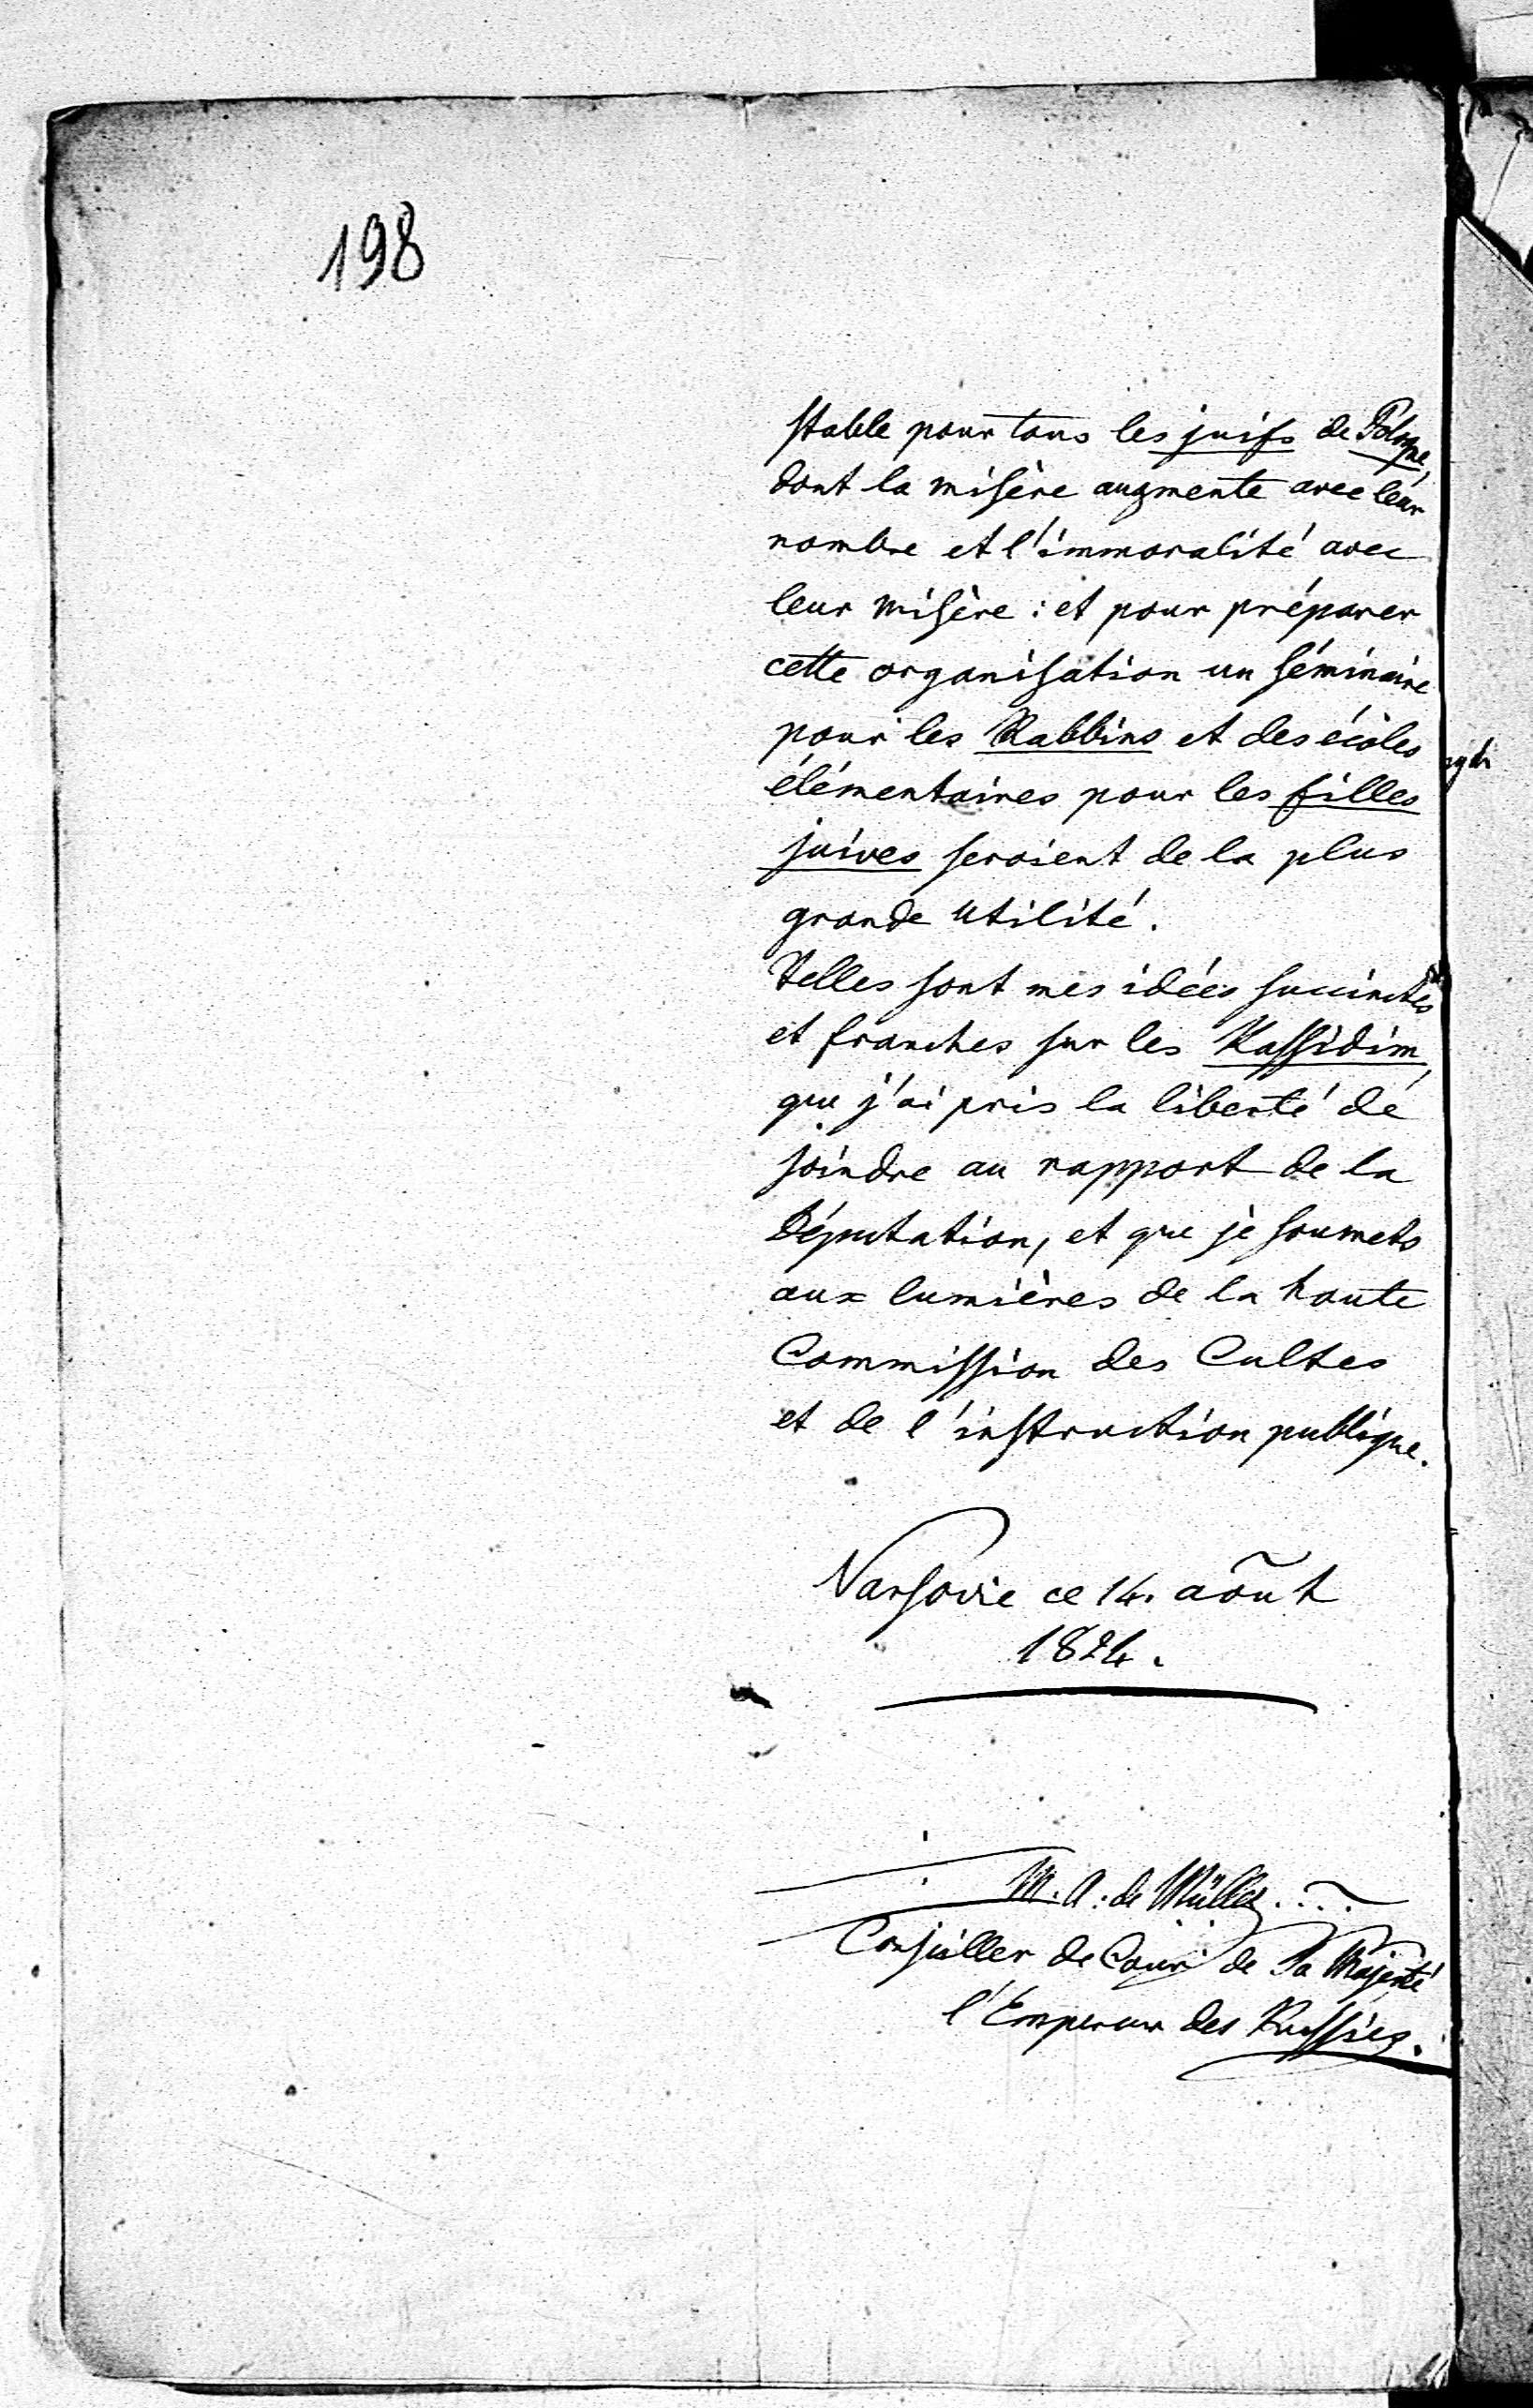 198
stable pour tous les juifs de Pologne,
dont la misère augmente avec leur
nombre et l'immoralité avec
leur misère : et pour préparer
cette organisation un séminaire
pour les Rabbins et des écoles
élémentaires pour les filles
juives seroient de la plus
grande utilité.
Telles sont mes idées succinctes
et franches sur les Kassidim,
que j'ai pris la liberté de
joindre au rapport de la
Députation, et que je soumets
aux lumières de la haute
Commission des Cultes
et de l'instruction publique.
Varsovie ce 14. août
1824.
M. A. de Müller
Conseiller de Cour de Sa Majesté
l'Empereur des Russies.